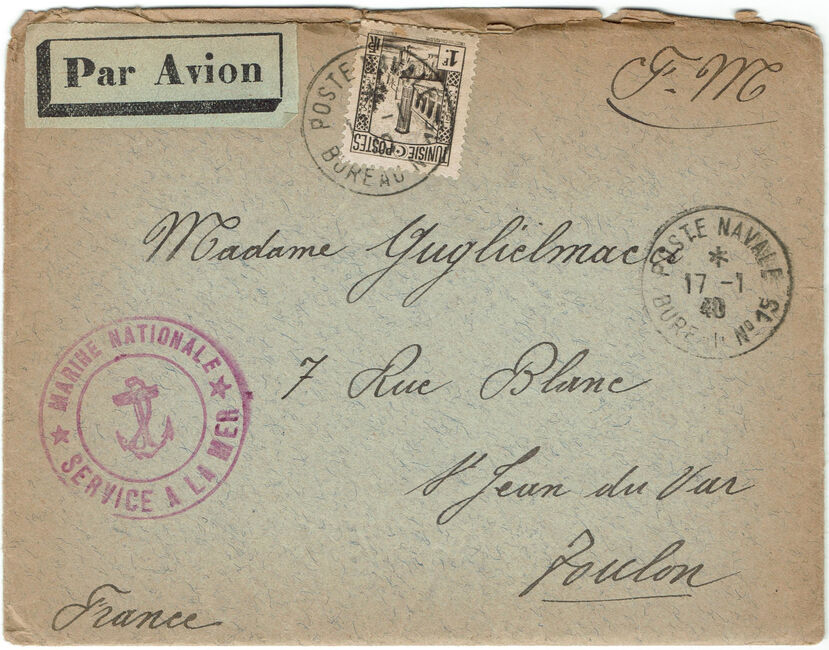 Par Avion
POSTE NAVALE
BUREAU No
1F
TUNISIE POSTES
F. M
Madame Guglielmacci
POSTE NAVALE
17 -1
40
BUREAU No 15
MARINE NATIONALE
SERVICE A LA MER
7 Rue Blanc
St Jean du Var
Toulon
France